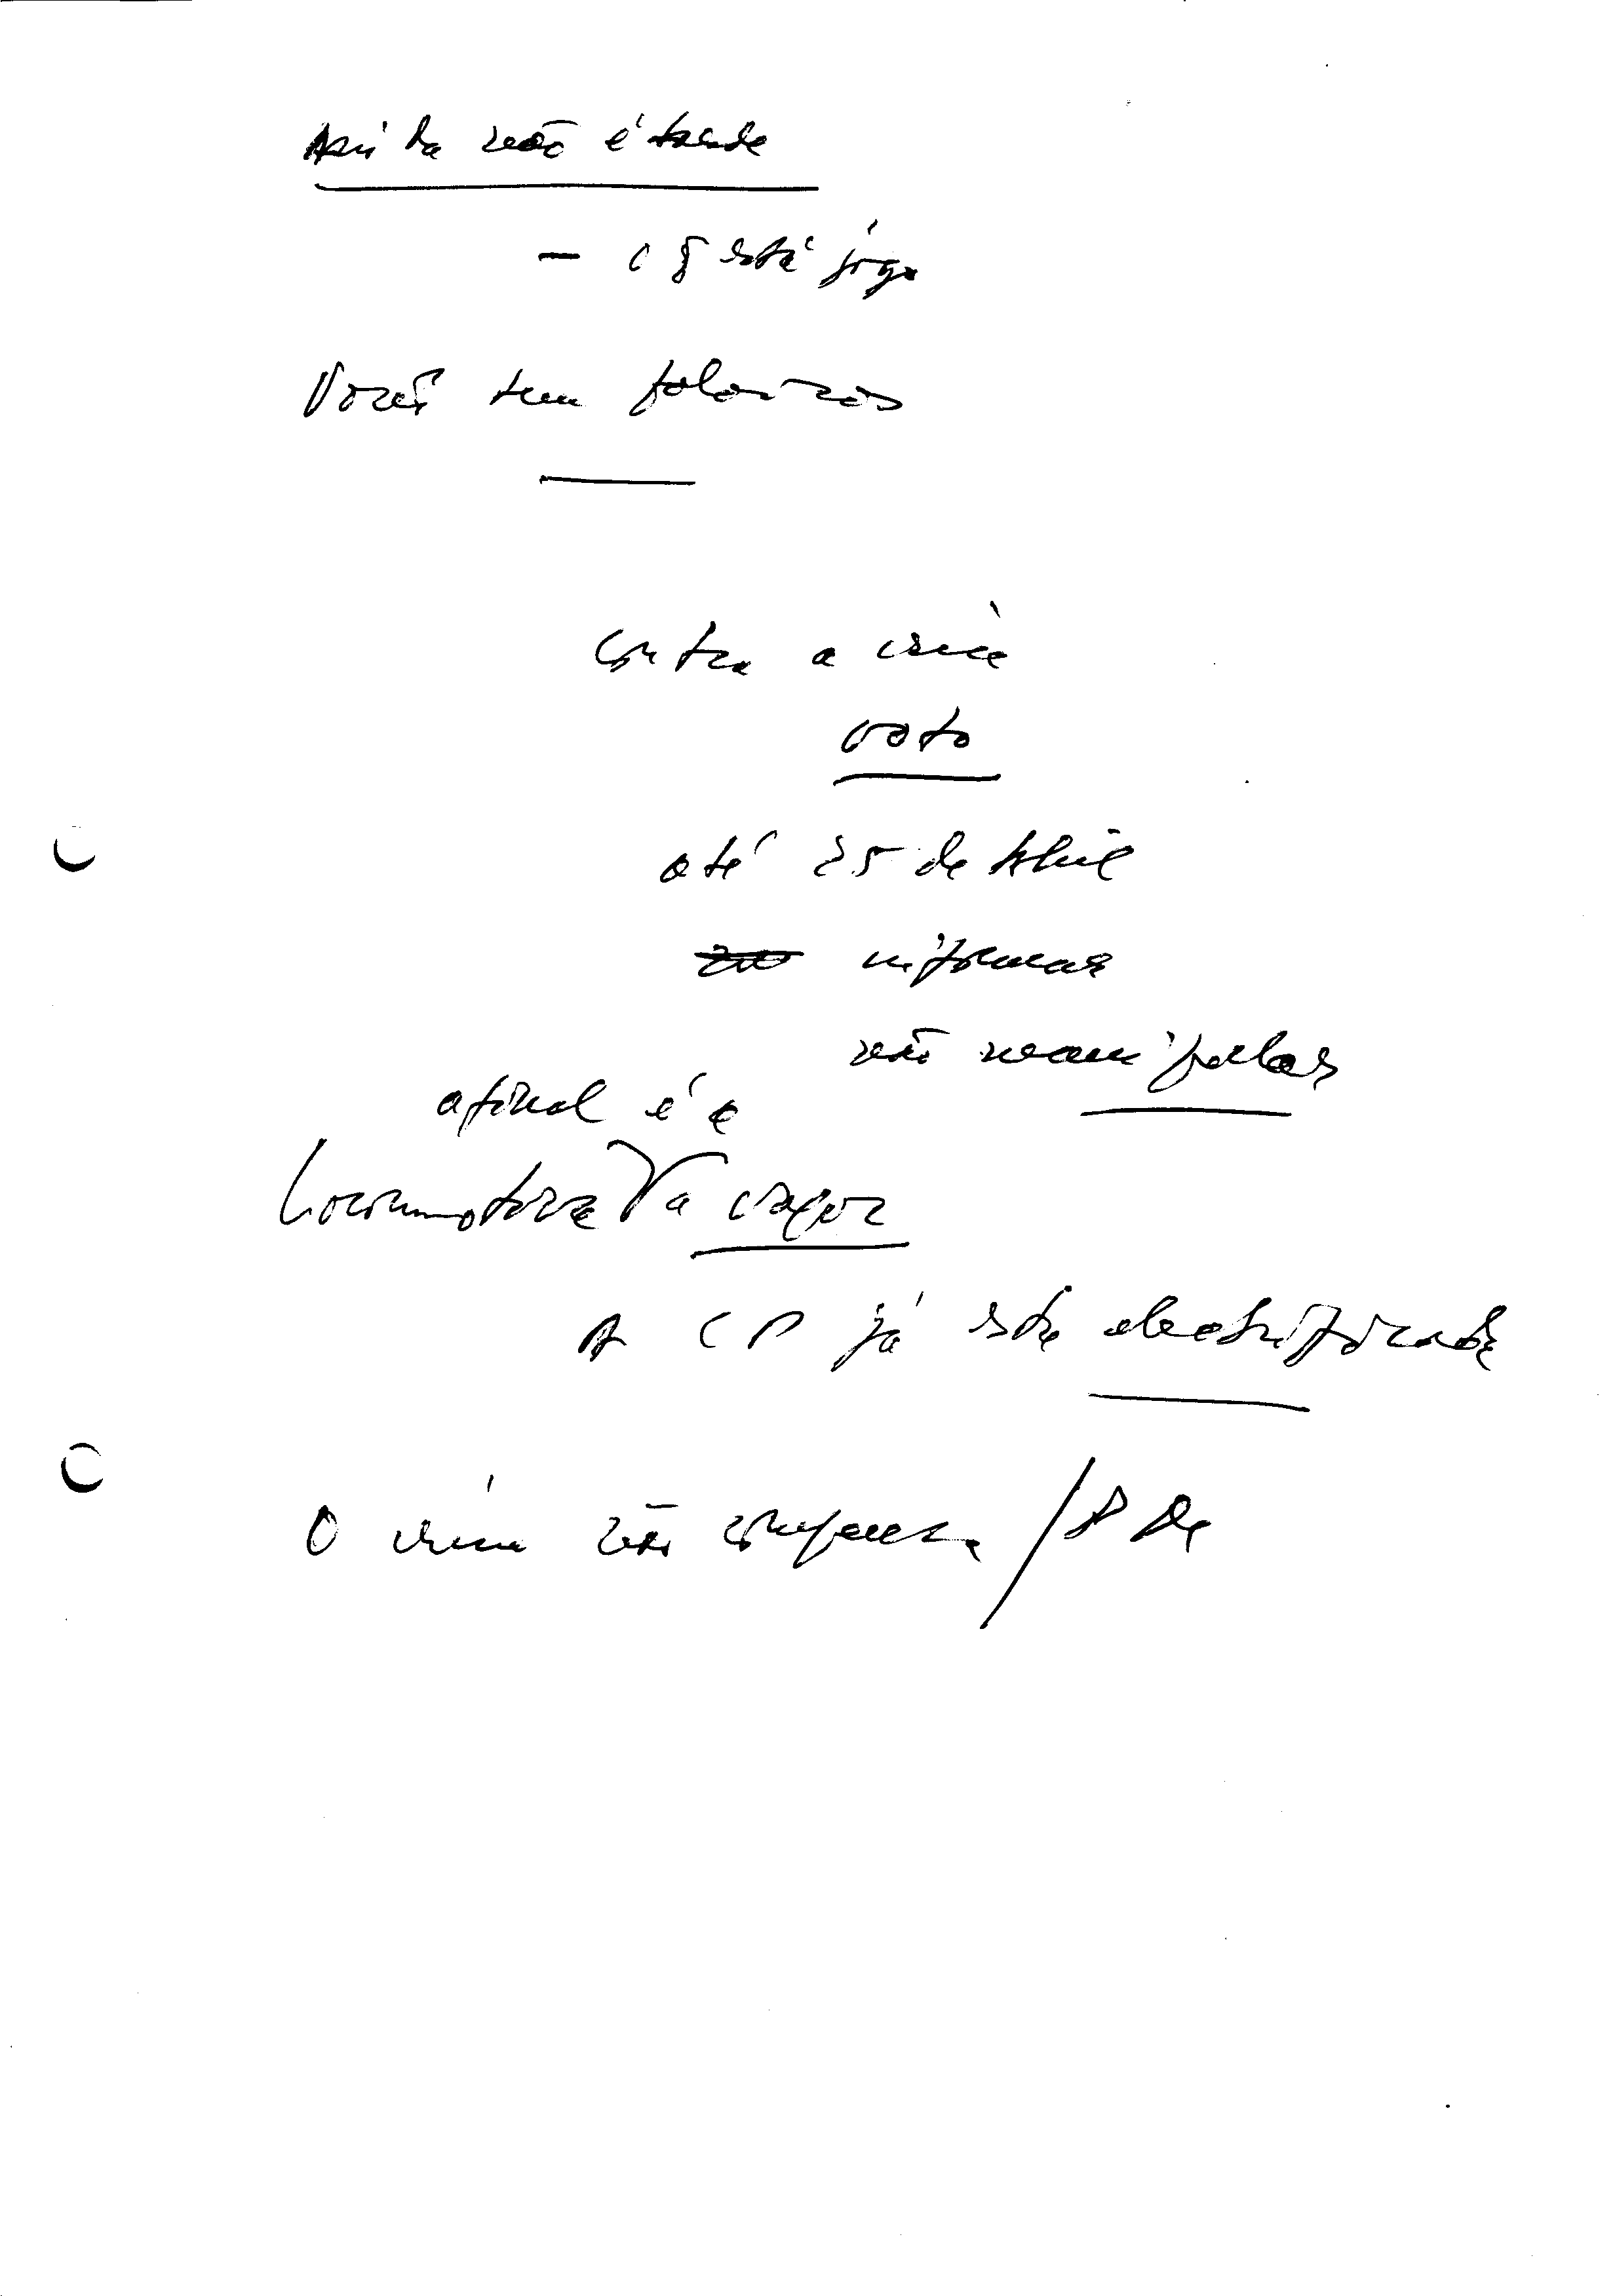 Ainda não é tarde
— o q está jogo
Você tem palavras
contra a crise
voto
até 25 de Abril
informar
não manipular
afinal é a
locomotiva a vapor
A CP já está electrificada
O crime não compensa /